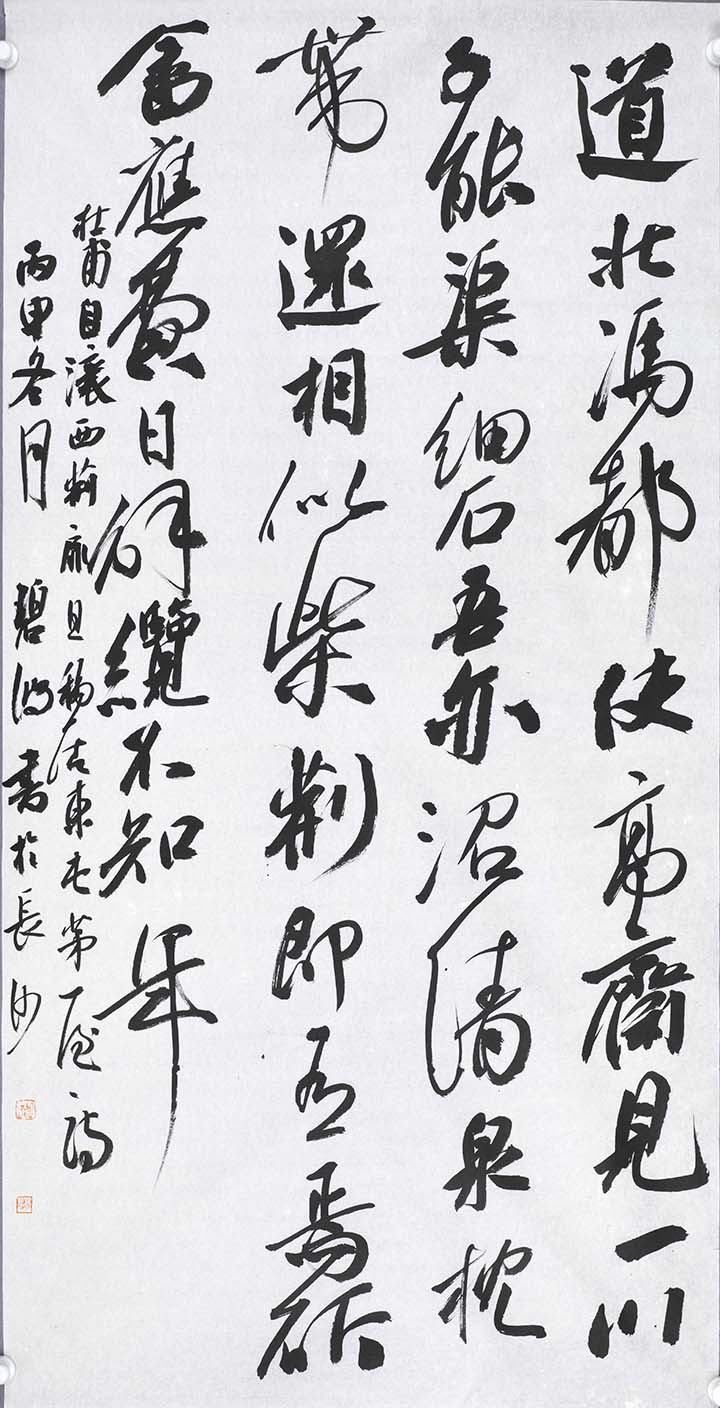 道北馮都使高齋見一川
子能渠細石吾亦沼清泉枕
帶還相似柴荊即有焉斫
畬應費日解纜不知年
杜甫自瀼西荊扉且移居東屯茅屋詩
丙申冬月碧波書於長沙